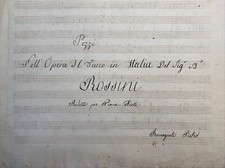 Pezzi
Nell Opera Il Turco in Italia Del Sig.r
Rossini
Ridotti per Piano-Forte
Pietro